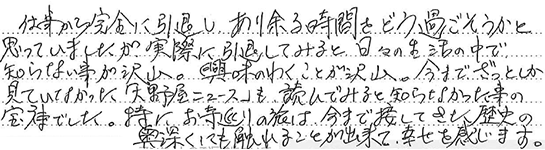 仕事から完全に引退し、あり余る時間をどう過ごそうかと
思っていましたが、実際に引退してみると、日々の生活の中で
知らない事が沢山。興味のわくことが沢山。今までざっとしか
見ていなかった「矢野屋ニュース」も、読んでみると知らなかった事の
宝庫でした。特にお寺巡りの旅は、今まで接してきた歴史の
奥深くにも触れることが出来て、幸せを感じます。